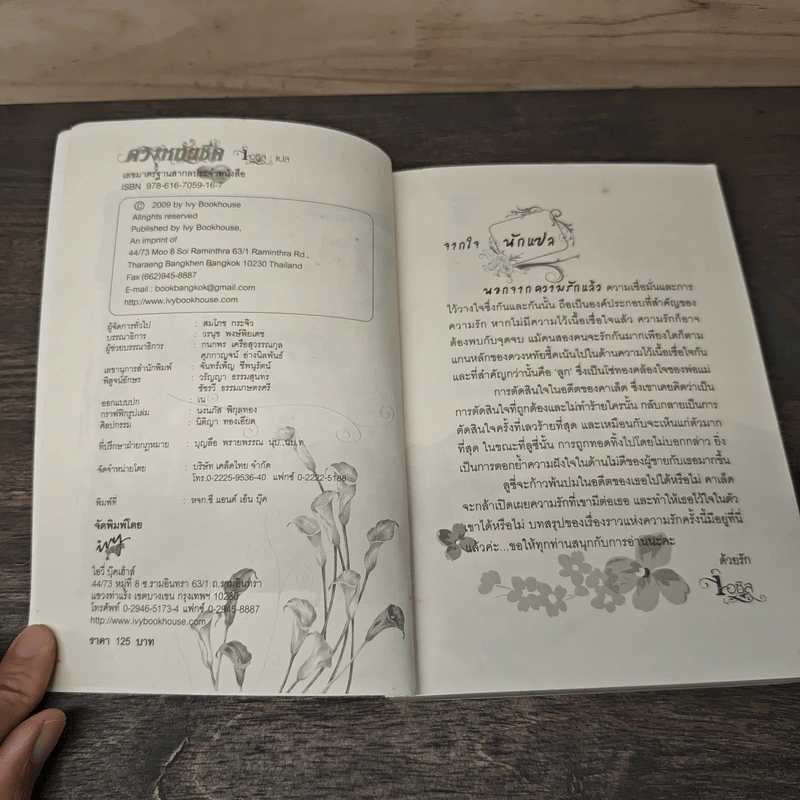 ดวงหทัยชีค ไอซิส : แปล
เลขมาตรฐานสากลประจำหนังสือ
ISBN 978-616-7059-16-7
© 2009 by Ivy Bookhouse
Allrights reserved
Published by Ivy Bookhouse,
An imprint of
44/73 Moo 8 Soi Raminthra 63/1 Raminthra Rd.,
Tharaeng Bangkhen Bangkok 10230 Thailand
Fax (662)945-8887
E-mail : bookbangkok@gmail.com
http://www.ivybookhouse.com
ผู้จัดการทั่วไป : สมโภช กระจิว
บรรณาธิการ : วรนุช พงษ์พิยเดช
ผู้ช่วยบรรณาธิการ : กนกพร เครือสุวรรณกุล
ศุภกาญจน์ อ่างนิลพันธ์
เลขานุการสำนักพิมพ์ : จันทร์เพ็ญ ชีพนุรัตน์
พิสูจน์อักษร : วรัญญา ธรรมสุนทร
ชัชรวี ธรรมเกษตรศรี
ออกแบบปก : เน
กราฟฟิกรูปเล่ม : นงนภัส พิกุลทอง
ศิลปกรรม : นิติญา ทองเอียด
ที่ปรึกษาฝ่ายกฎหมาย : บุญลือ พรายพรรณ นบ.,นบ.ท.
จัดจำหน่ายโดย : บริษัท เคล็ดไทย จำกัด
โทร.0-2225-9536-40 แฟกซ์ 0-2222-5188
พิมพ์ที่ : หจก.ซี แอนด์ เอ็น บุ๊ค
จัดพิมพ์โดย
ivy
ไอวี่ บุ๊คเฮ้าส์
44/73 หมู่ที่ 8 ซ.รามอินทรา 63/1 ถ.รามอินทรา
แขวงท่าแร้ง เขตบางเขน กรุงเทพฯ 10230
โทรศัพท์ 0-2946-5173-4 แฟกซ์ 0-2945-8887
http://www.ivybookhouse.com
ราคา 125 บาท
จากใจ นักแปล
นอกจากความรักแล้ว ความเชื่อมั่นและการ
ไว้วางใจซึ่งกันและกันนั้น ถือเป็นองค์ประกอบที่สำคัญของ
ความรัก หากไม่มีความไว้เนื้อเชื่อใจแล้ว ความรักก็อาจ
ต้องพบกับจุดจบ แม้คนสองคนจะรักกันมากเพียงใดก็ตาม
แกนหลักของดวงหทัยชีคเน้นไปในด้านความไว้เนื้อเชื่อใจกัน
และที่สำคัญกว่านั้นคือ 'ลูก' ซึ่งเป็นโซ่ทองคล้องใจของพ่อแม่
การตัดสินใจในอดีตของคาเล็ด ซึ่งเขาเคยคิดว่าเป็น
การตัดสินใจที่ถูกต้องและไม่ทำร้ายใครนั้น กลับกลายเป็นการ
ตัดสินใจครั้งที่เลวร้ายที่สุด และเหมือนกับจะเห็นแก่ตัวมาก
ที่สุด ในขณะที่ลูซี่นั้น การถูกทอดทิ้งไปโดยไม่บอกกล่าว ยิ่ง
เป็นการตอกย้ำความฝังใจในด้านไม่ดีของผู้ชายกับเธอมากขึ้น
ลูซี่จะก้าวพ้นปมในอดีตของเธอไปได้หรือไม่ คาเล็ด
จะกล้าเปิดเผยความรักที่เขามีต่อเธอ และทำให้เธอไว้ใจในตัว
เขาได้หรือไม่ บทสรุปของเรื่องราวแห่งความรักครั้งนี้มีอยู่ที่นี่
แล้วค่ะ...ขอให้ทุกท่านสนุกกับการอ่านนะคะ
ด้วยรัก
ไอซิส